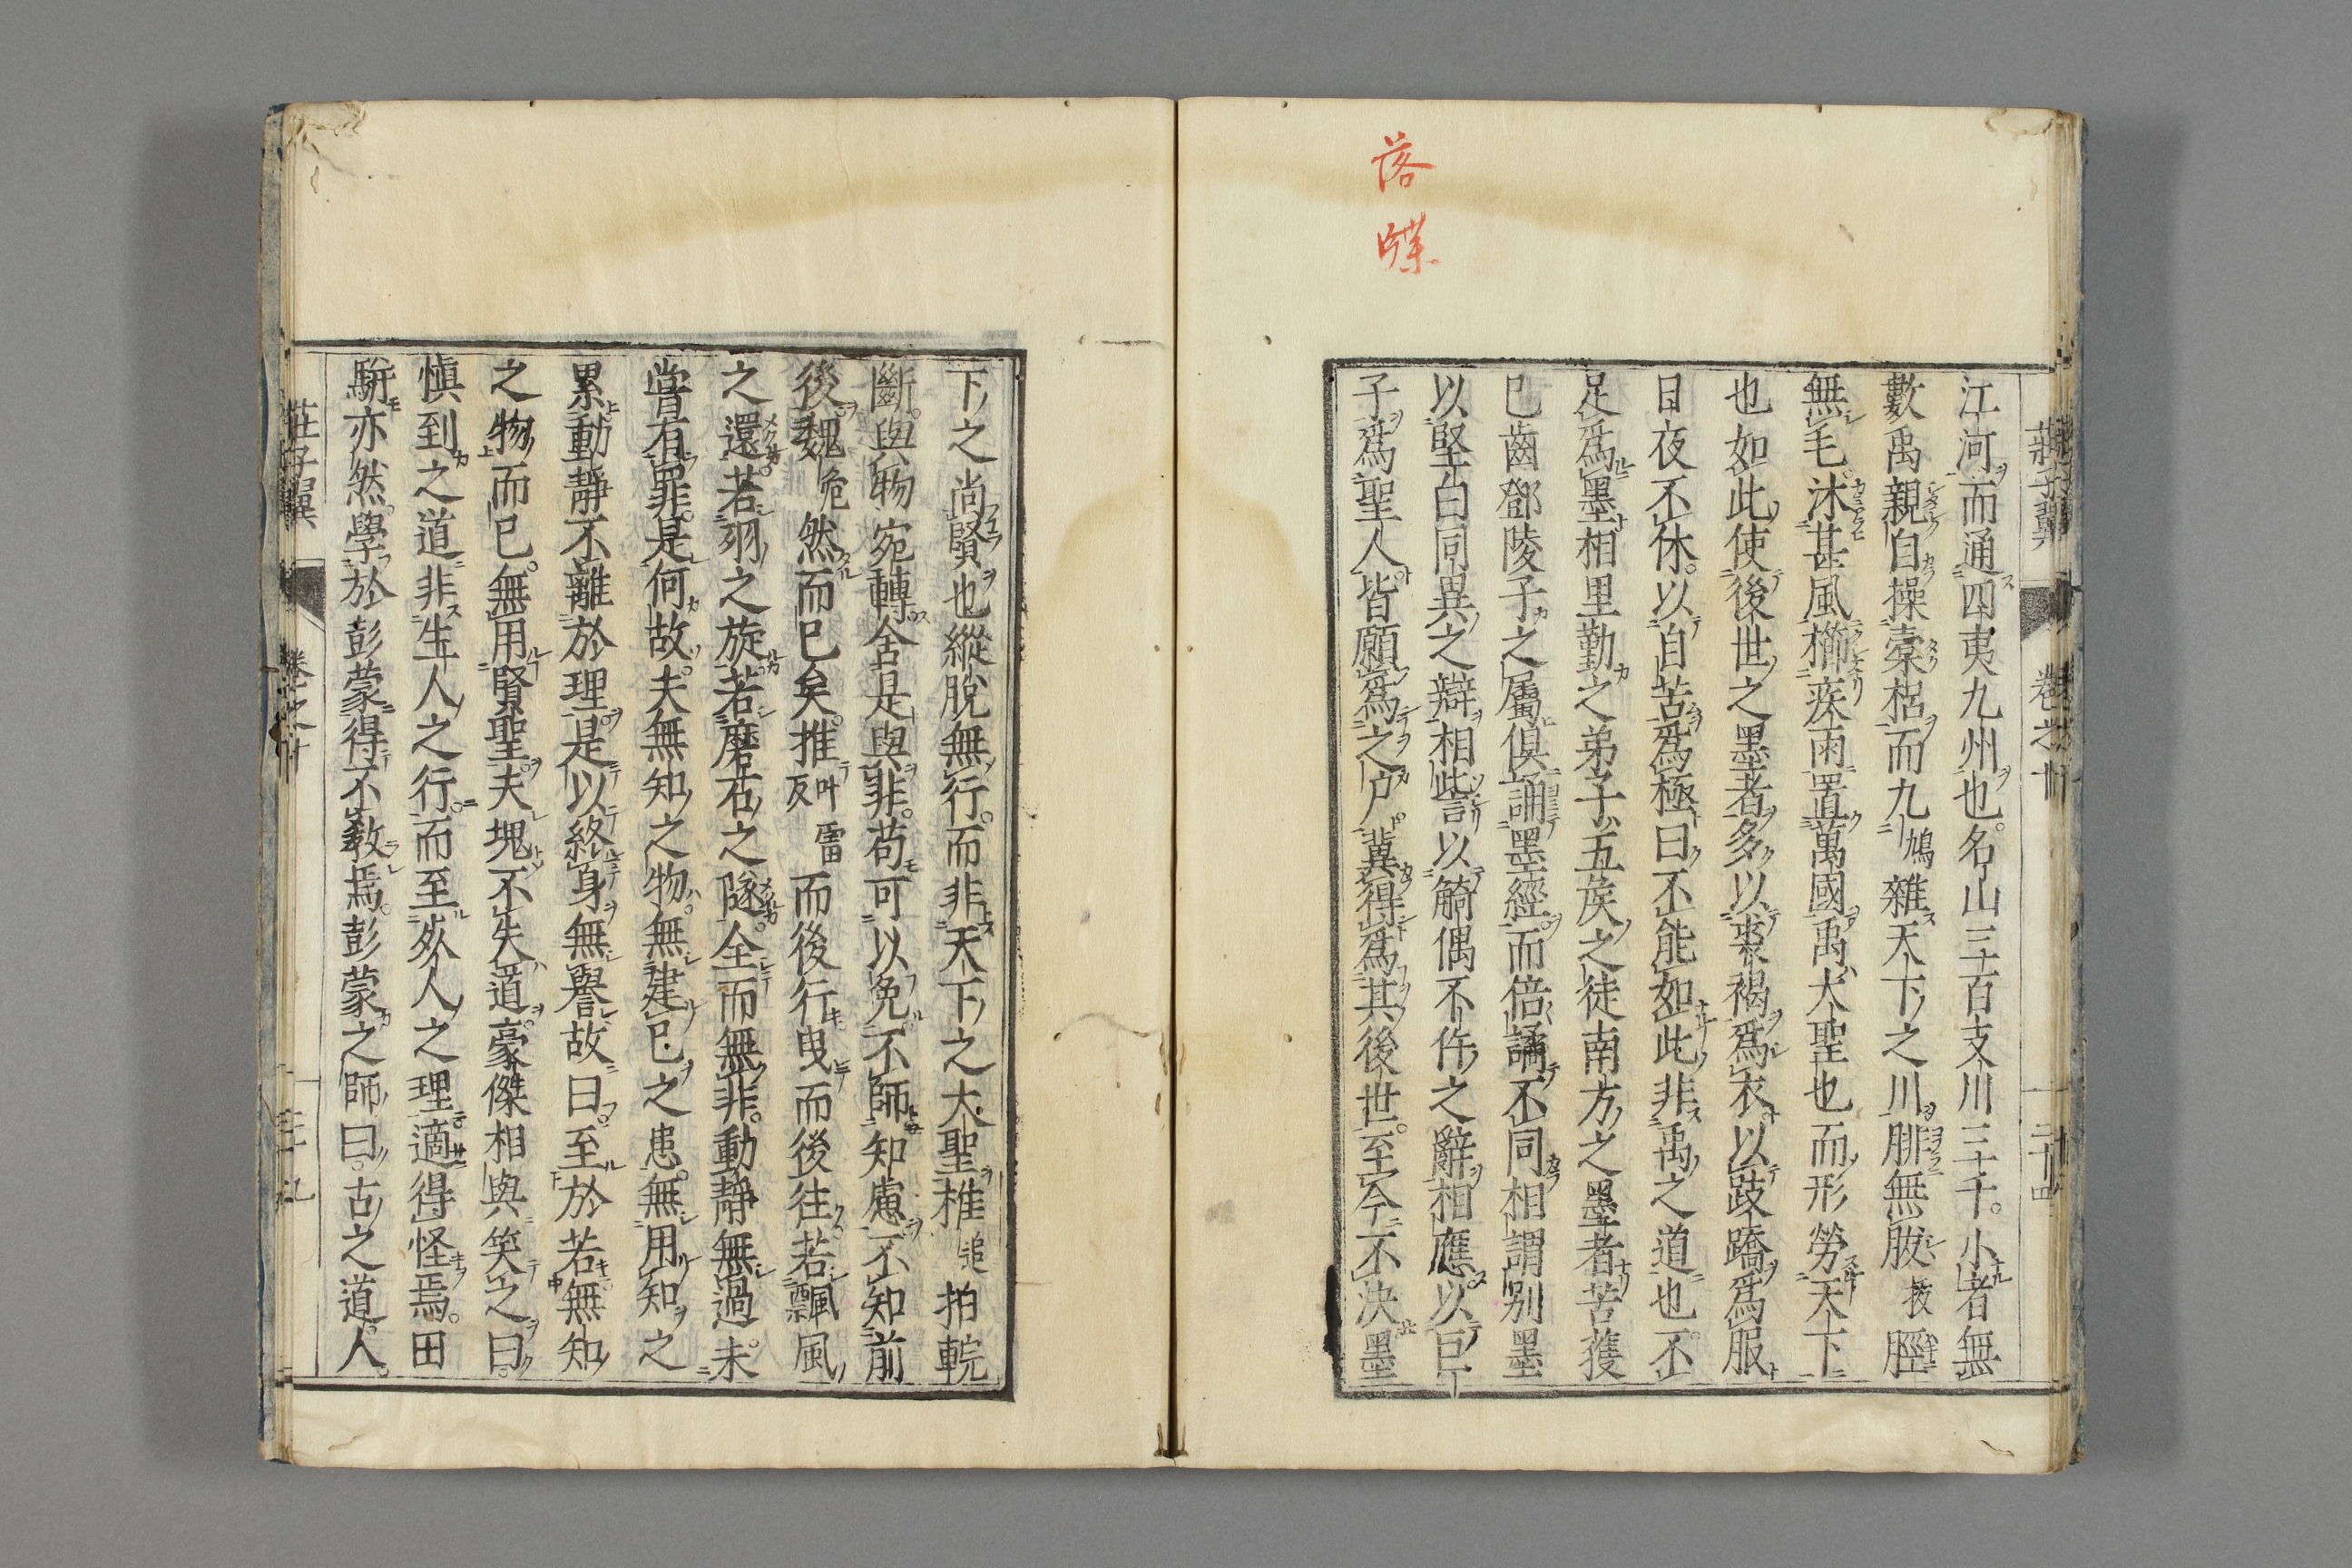 落
牒
莊子翼　卷之十　二十四
江河而通四夷九州也名山三百支川三千小者無
數禹親自操橐耜而九鳩雜天下之川腓無胈拔脛
無毛沐甚風櫛疾雨置萬國禹大聖也而形勞天下
也如此使後世之墨者多以裘褐爲衣以跂蹻爲服
日夜不休以自苦爲極曰不能如此非禹之道也不
足爲墨相里勤之弟子五侯之徒南方之墨者苦獲
已齒鄧陵子之屬俱誦墨經而倍譎不同相謂别墨
以堅白同異之辯相訾以觭偶不仵之辭相應以巨
子爲聖人皆願爲之尸冀得爲其後世至今不決墨
下之尚賢也縱脫無行而非天下之大聖椎追拍輐
斷與物宛轉舍是與非苟可以免不師知慮不知前
後魏危然而已矣推叫雷反而後行曳而後往若飄風
之還若羽之旋若磨石之隧全而無非動靜無過未
嘗有罪是何故夫無知之物無建已之患無用知之
累動靜不離於理是以終身無譽故曰至於若無知
之物而已無用賢聖夫塊不失道豪傑相與笑之曰
慎到之道非生人之行而至死人之理適得怪焉田
駢亦然學於彭蒙得不敎焉彭蒙之師曰古之道人
莊子翼　卷之十